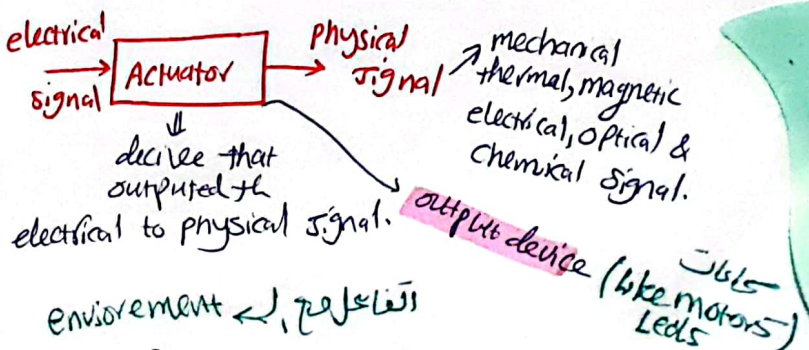 electrical
signal
Actuator
physical
signal
mechanical
thermal, magnetic
electrical, optical &
chemical signal.
decivee that
outputed th
electrical to physical signal.
output device (like motors)
Leds
enviorement التفاعل مع ال